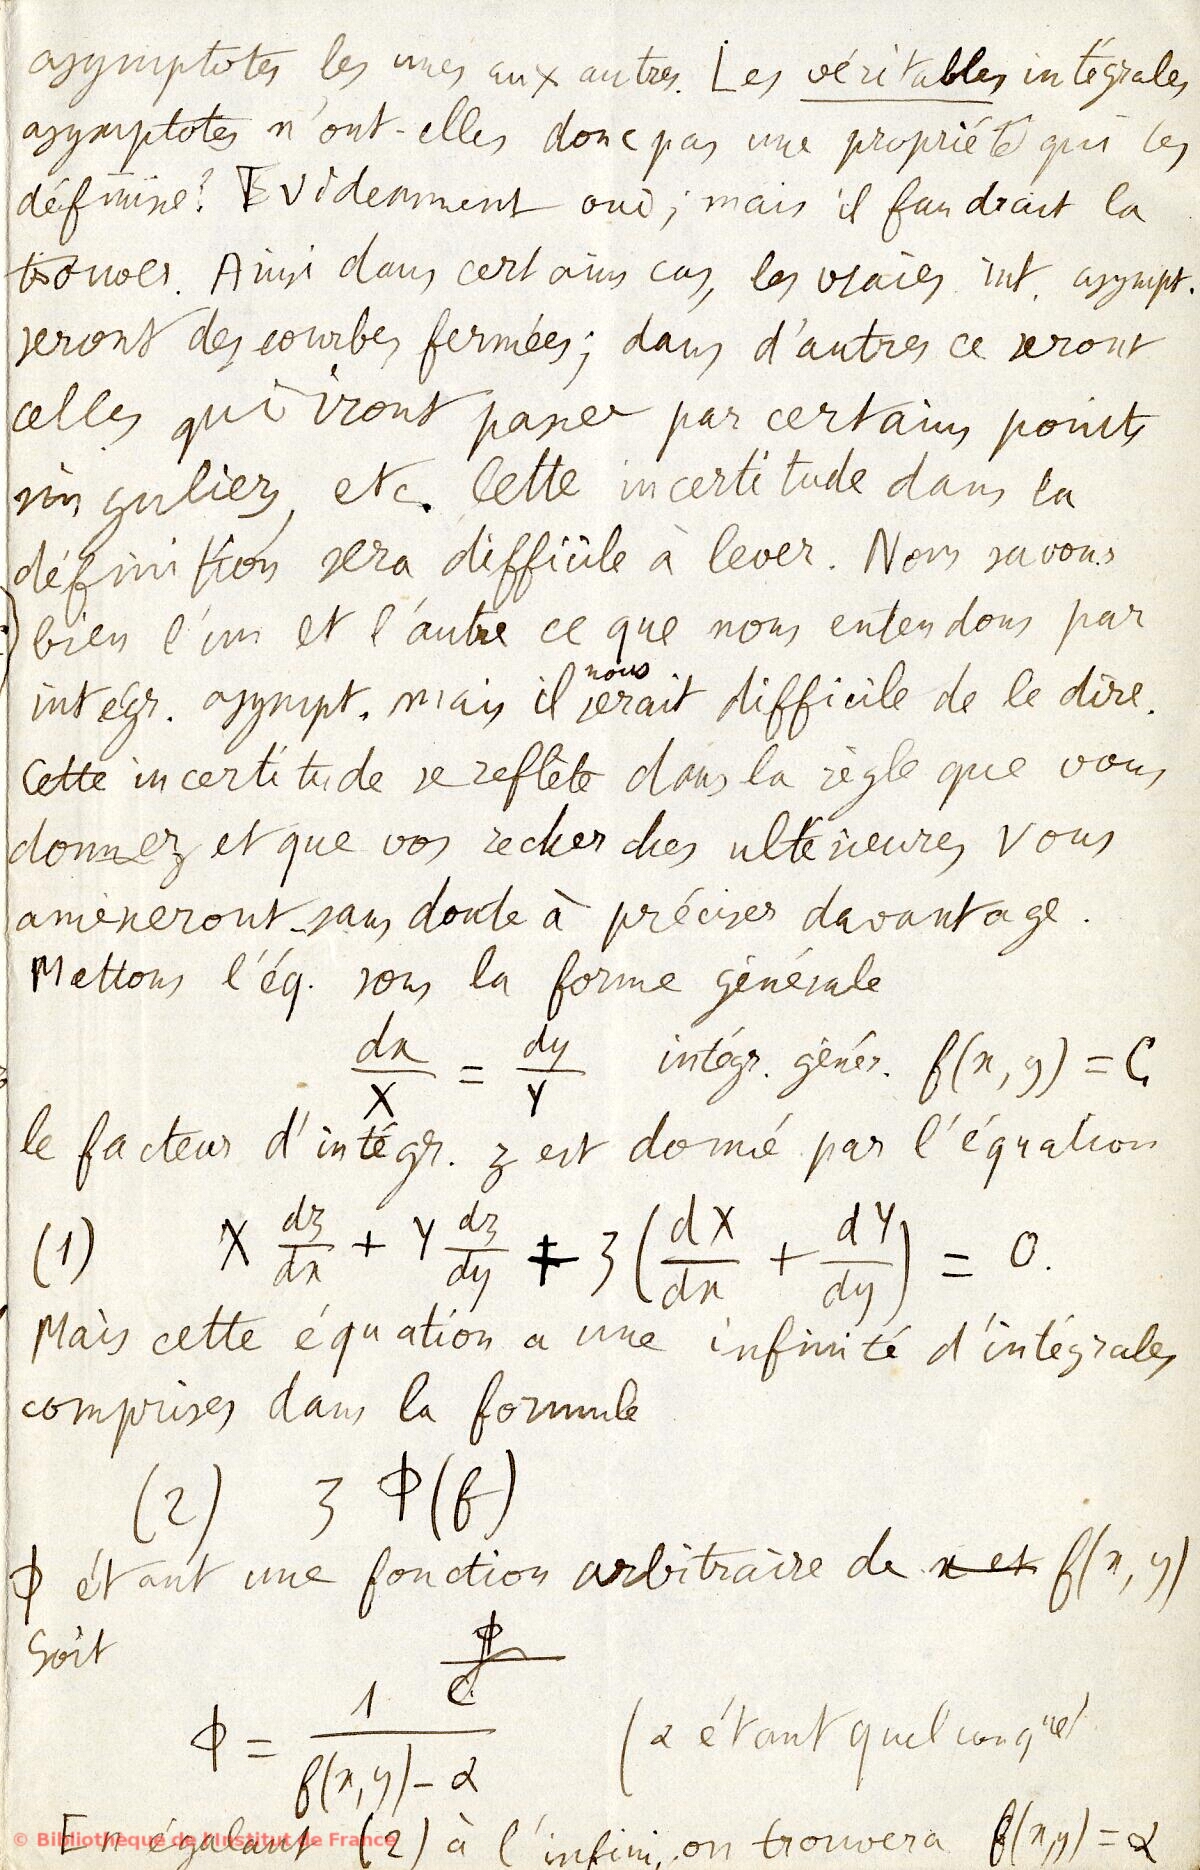 asymptotes les unes aux autres. Les véritables intégrales
asymptotes n'ont-elles donc pas une propriété qui les
définisse? Evidemment oui; mais il faudrait la
trouver. Ainsi dans certains cas, les vraies int. asympt.
seront des courbes fermées; dans d'autres ce seront
celles qui iront passer par certains points
singuliers, etc. Cette incertitude dans la
définition sera difficile à lever. Nous savons
bien l'un et l'autre ce que nous entendons par
intégr. asympt. mais il nous serait difficile de le dire.
Cette incertitude se reflète dans la règle que vous
donnez et que vos recherches ultérieures vous
amèneront sans doute à préciser davantage.
Mettons l'éq. sous la forme générale
dx/X = dy/Y intégr. génér. f(x, y) = C
le facteur d'intégr. z est donné par l'équation
(1) X dz/dx + Y dz/dy + z (dX/dx + dY/dy) = 0.
Mais cette équation a une infinité d'intégrales
comprises dans la formule
(2) z Φ(f)
Φ étant une fonction arbitraire de x et f(x, y)
Soit
Φ = 1/(f(x, y) - α) (α étant quelconque)
En égalant (2) à l'infini, on trouvera f(x,y) = α
© Bibliothèque de l'Institut de France